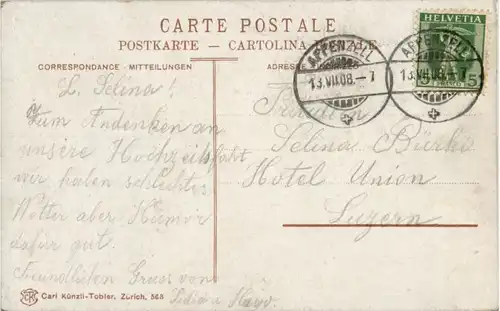 CARTE POSTALE
POSTKARTE – CARTOLINA
CORRESPONDANCE - MITTEILUNGEN
ADRESSE
HELVETIA
5
APPENZELL
13.VII.08.–7
APPENZELL
13.VII.08.–7
L. Selina!
Zum Andenken an
unsere Hochzeitsfahrt
wir haben schlechtes
Wetter aber Humor
dafür gut.
Freundlichen Gruss von
Fräulein
Selina Bürke
Hotel Union
Luzern
Carl Künzli-Tobler, Zürich, 565